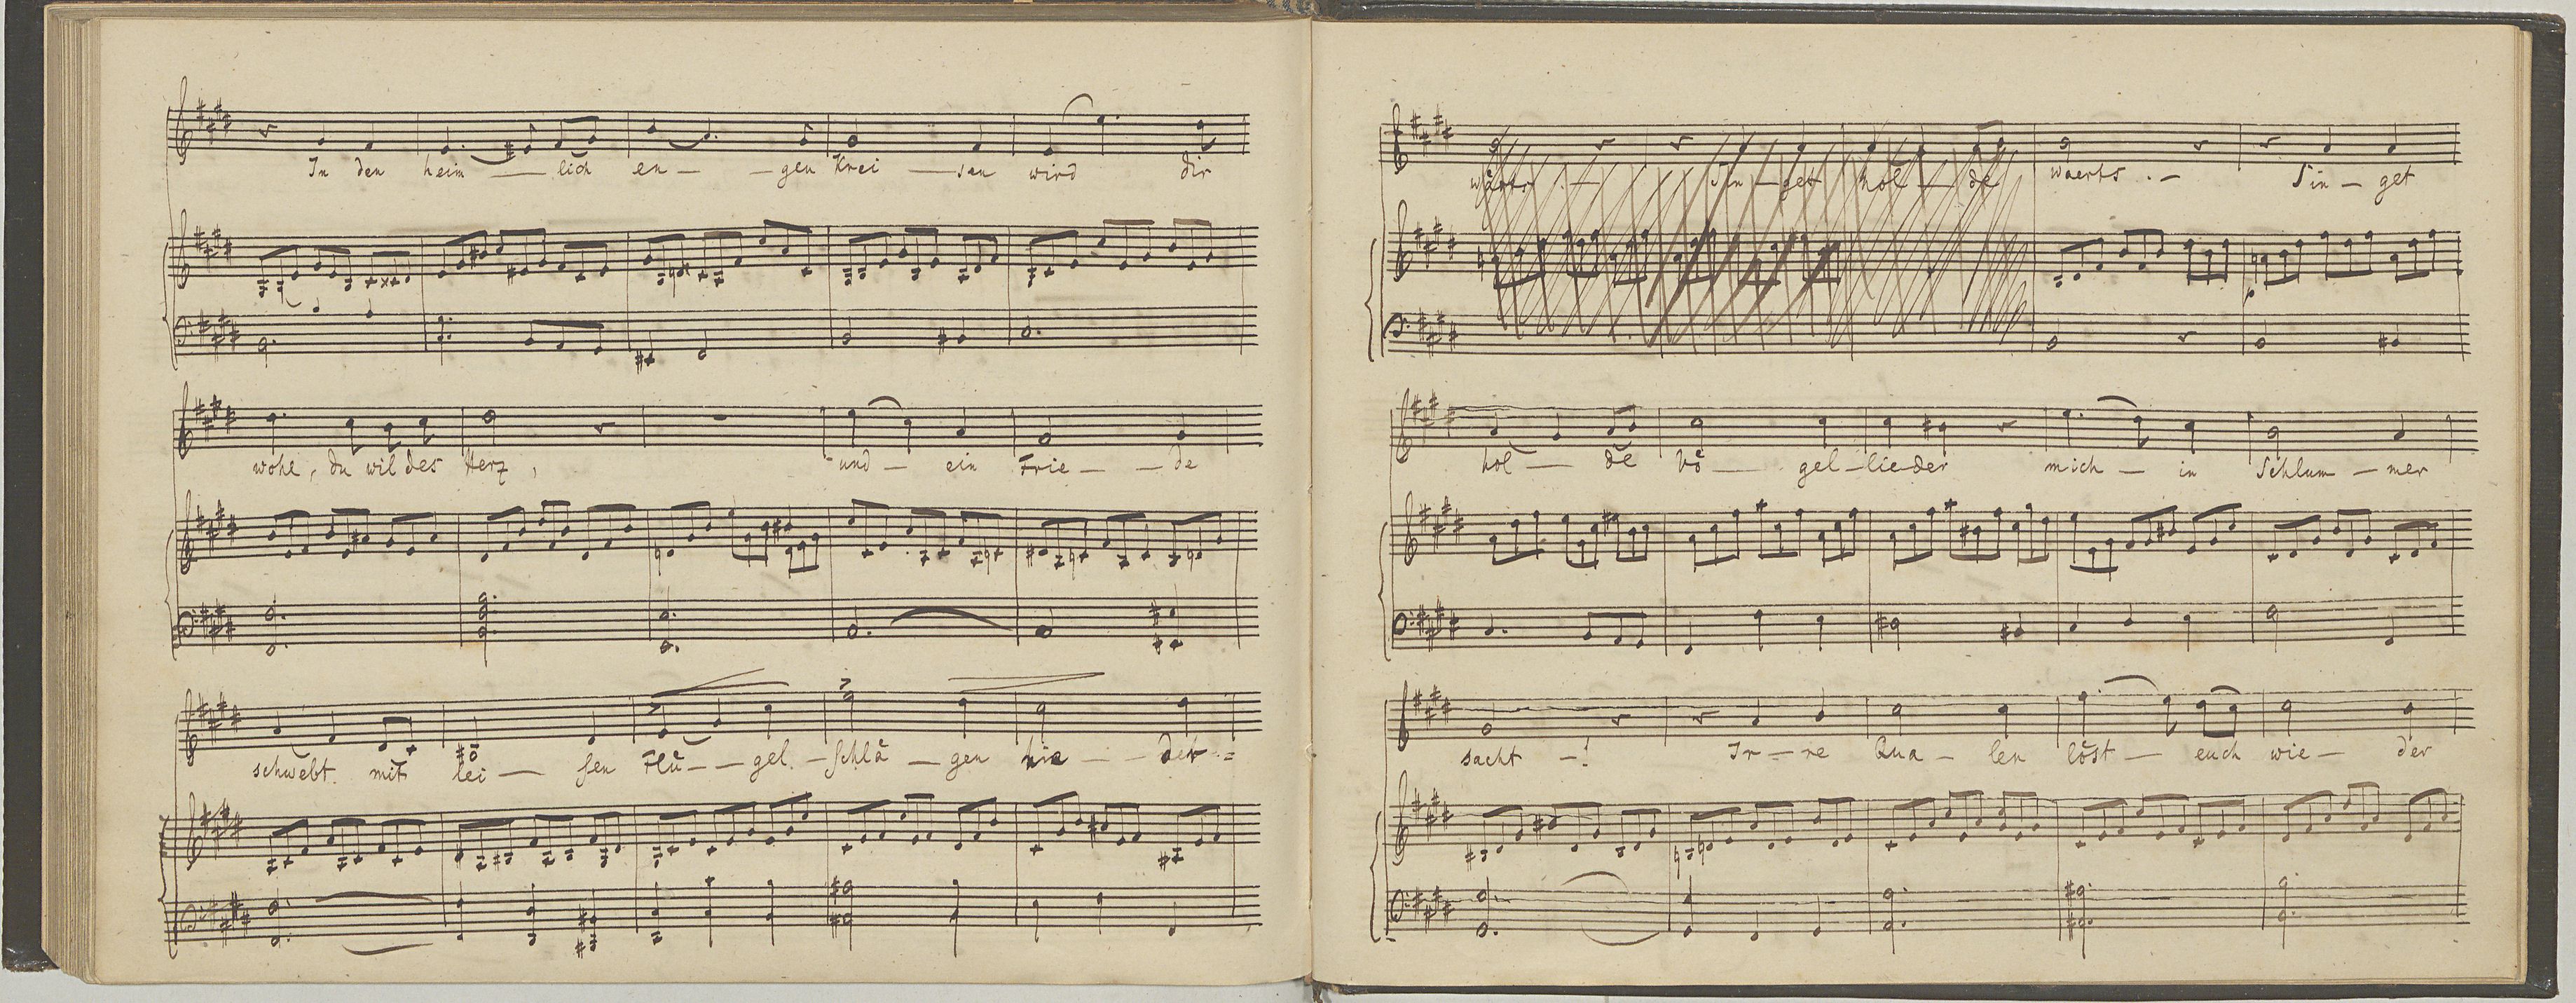 In den heim — lich en — — gen Krei — sen wird dir
wohl, du wil des Herz, und — ein Frie — — de
schwebt mit lei — sen Flü — — gel — schlä — gen nie — — der — =
wärts — Sin — get hol — de waerts . — Sin — get
hol — de Vö — gel — lieder mich — in Schlum — mer
sacht — ! Ir — re Qua — len löst — euch wie — der